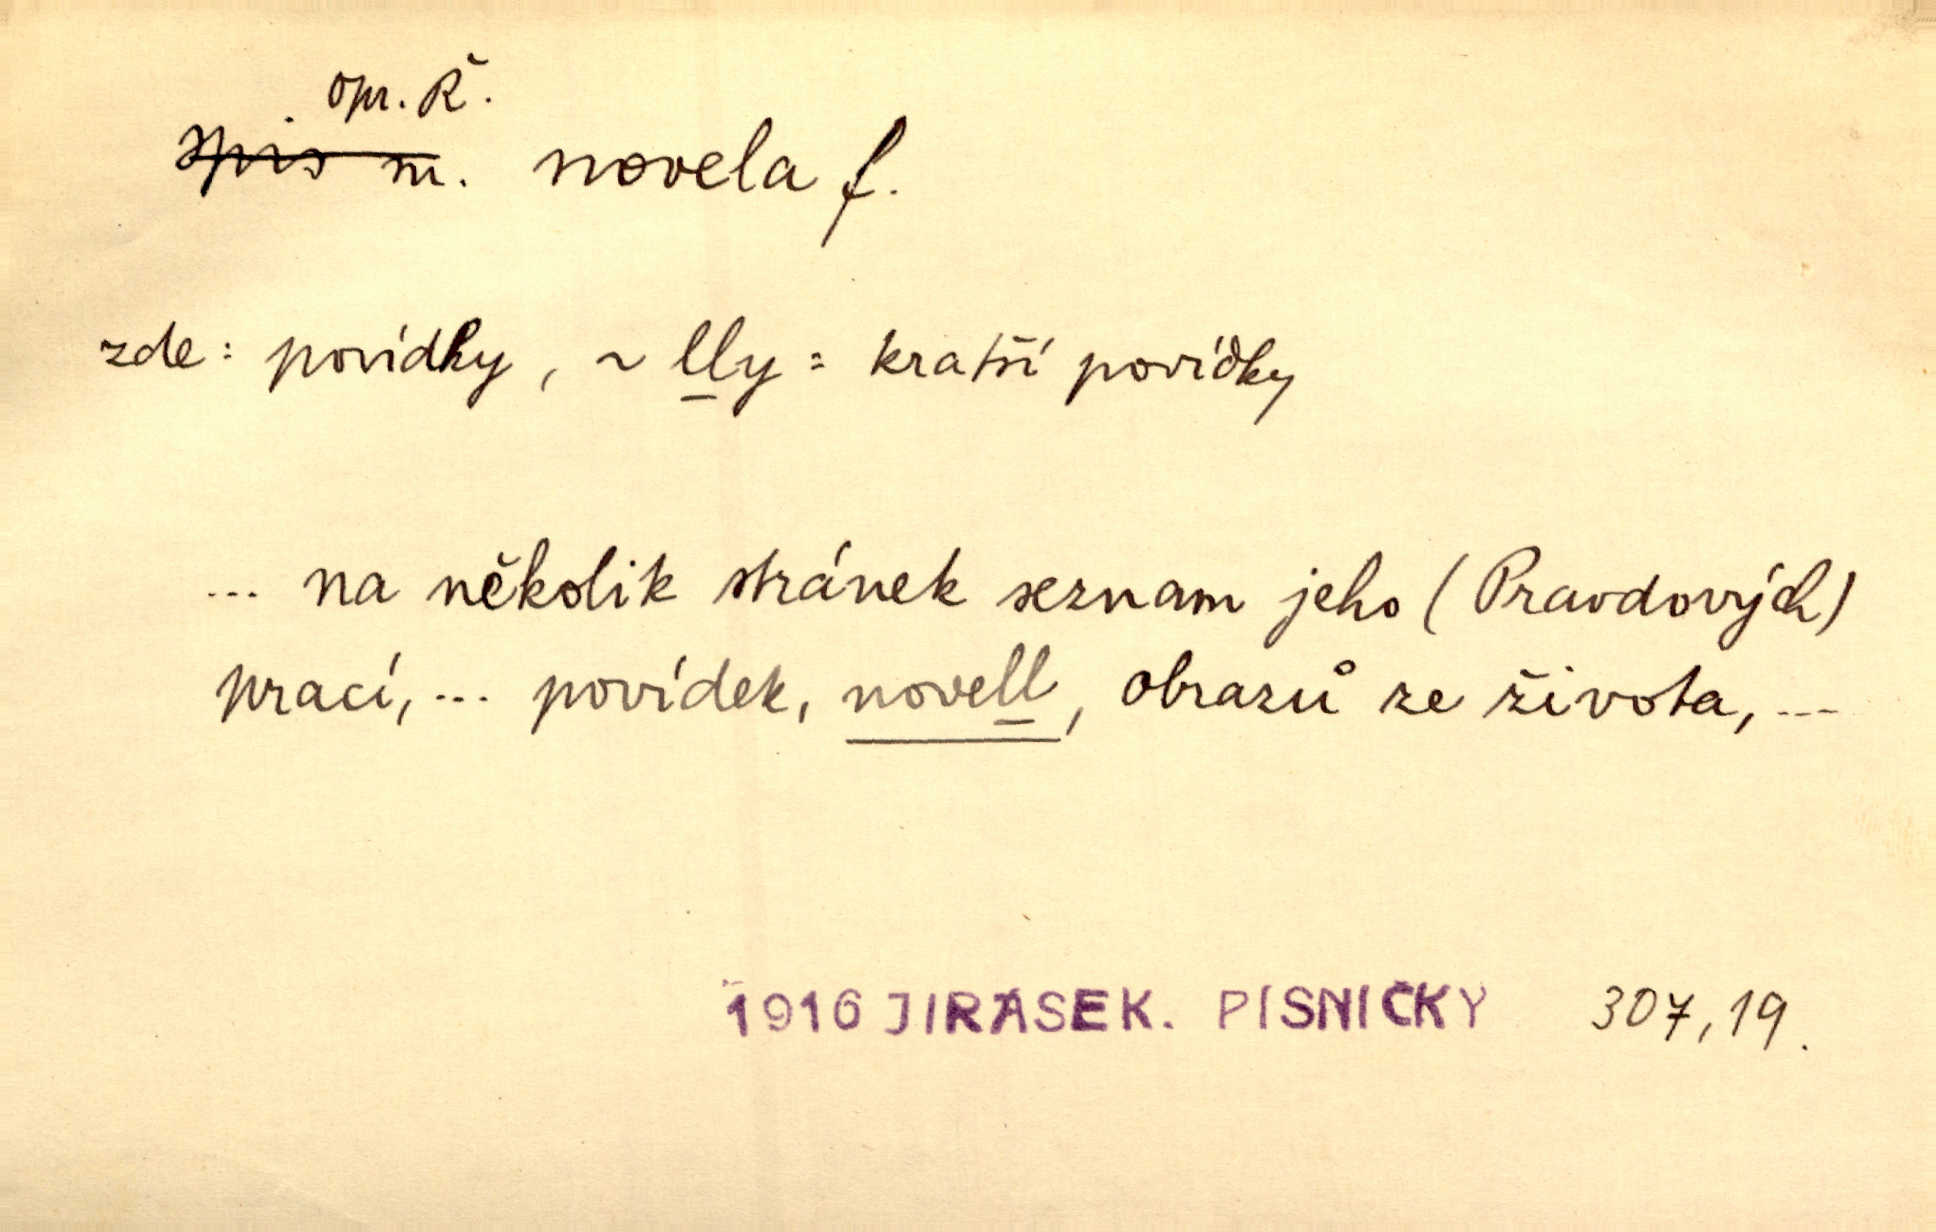 opr. Ř.
spis m. novela f.
zde: povídky, ~ lly = kratší povídky
... na několik stránek seznam jeho (Pravdových)
prací, ... povídek, novell, obrazů ze života, ...
1916 JIRÁSEK. PÍSNIČKY 307,19.